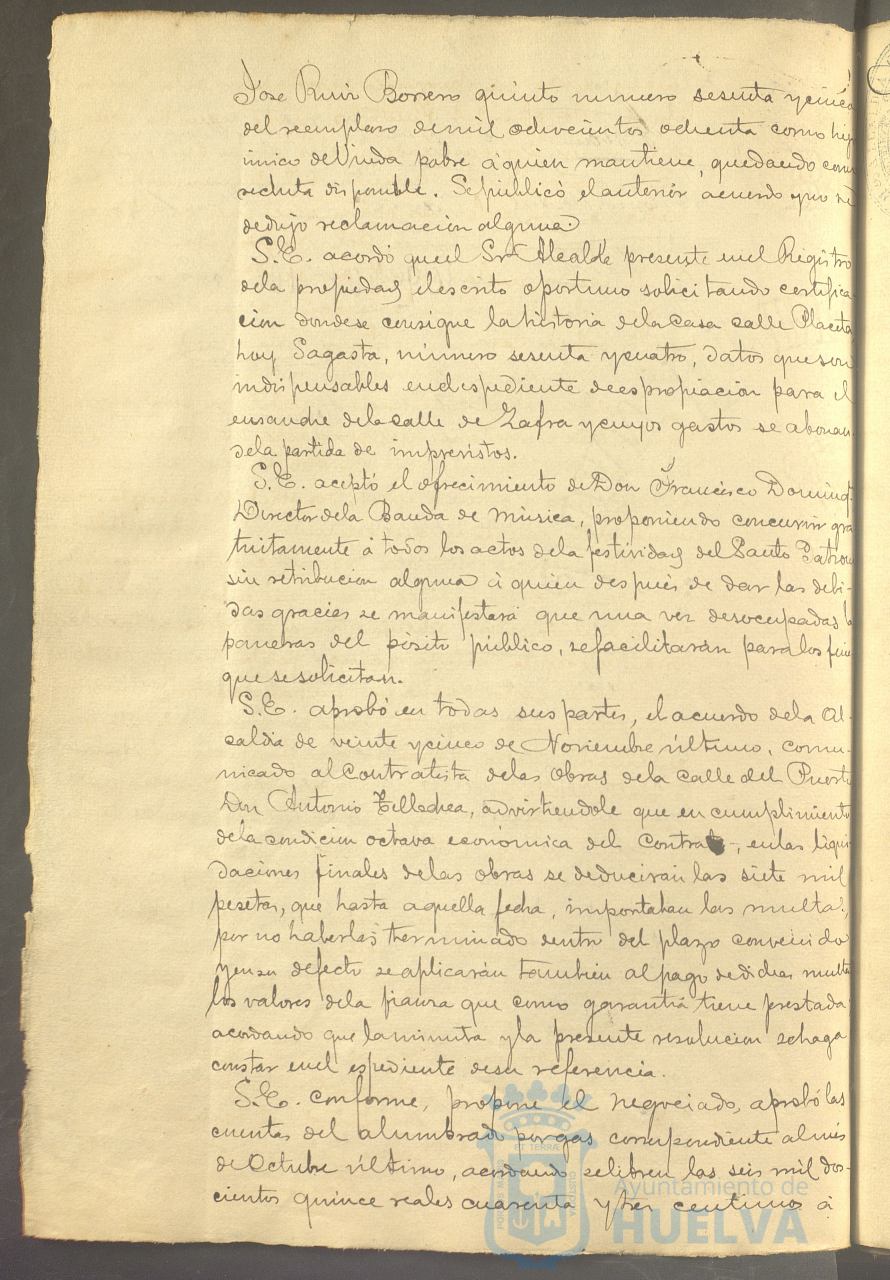 Jose Ruiz Borrero quinto numero sesenta y cinco
del reemplazo de mil ochocientos ochenta como hijo
unico de Viuda pobre á quien mantiene, quedando como
recluta disponible. Se publicó el anterior acuerdo y no se
dedujo reclamacion alguna.
S.E. acordó que el Sr. Alcalde presente en el Registro
de la propiedad el escrito oportuno solicitando certifica-
cion donde se consigne la historia de la casa calle Placeta
hoy Sagasta, número sesenta y cuatro, datos que son
indispensables en el espediente de espropiacion para el
ensanche de la calle de Zafra y cuyos gastos se abonan
de la partida de imprevistos.
S.E. aceptó el ofrecimiento de Don Francisco Doming.
Director de la Banda de Música, proponiendo concurrir gra
tuitamente á todos los actos de la festividad del Santo Patron
sin retribucion alguna á quien despues de dar las debi-
das gracias se manifestará que una vez desocupadas l
paneras del pósito público, se facilitarán para los fine
que se solicitan.
S.E. aprobó en todas sus partes, el acuerdo de la Al-
caldia de veinte y cinco de Noviembre último, comu-
nicado al Contratista de las Obras de la calle del Puerto
Don Antonio Tellechea, advirtiendole que en cumplimiento
de la condicion octava económica del Contrato, en las liqui
daciones finales de las obras se deducirán las siete mil
pesetas, que hasta aquella fecha, importaban las multas,
por no haberlas therminado dentro del plazo convenido
y en su defecto se aplicarán tambien al pago de dichas multas
los valores de la fianza que como garantia tiene prestada
acordando que la minuta y la presente resolucion se haga
constar en el espediente de su referencia.
S.E. conforme, propone el negociado, aprobó las
cuentas del alumbrado por gas correspondiente al mes
de Octubre último, acordando, se libren las seis mil dos-
cientos quince reales cuarenta y tres centimos á
Ayuntamiento de
HUELVA